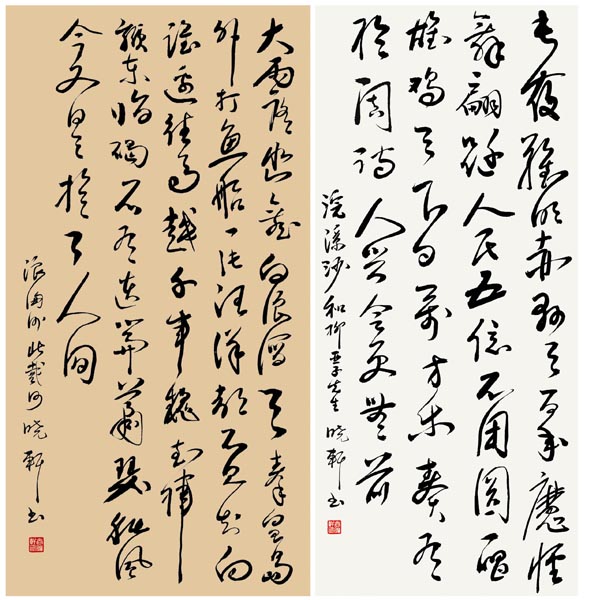 长夜难明赤县天百年魔怪
舞翩跹人民五億不团圆一唱
雄鸡天下白万方乐奏有
于阗诗人兴会更无前
浣溪沙和柳亚子先生 晓轩书
大雨落幽燕白浪滔天秦皇岛
外打鱼船一片汪洋都不见知向
谁边往事越千年魏武挥
鞭东临碣石有遗篇萧瑟秋风
今又是换了人间
浪淘沙北戴河晓轩书